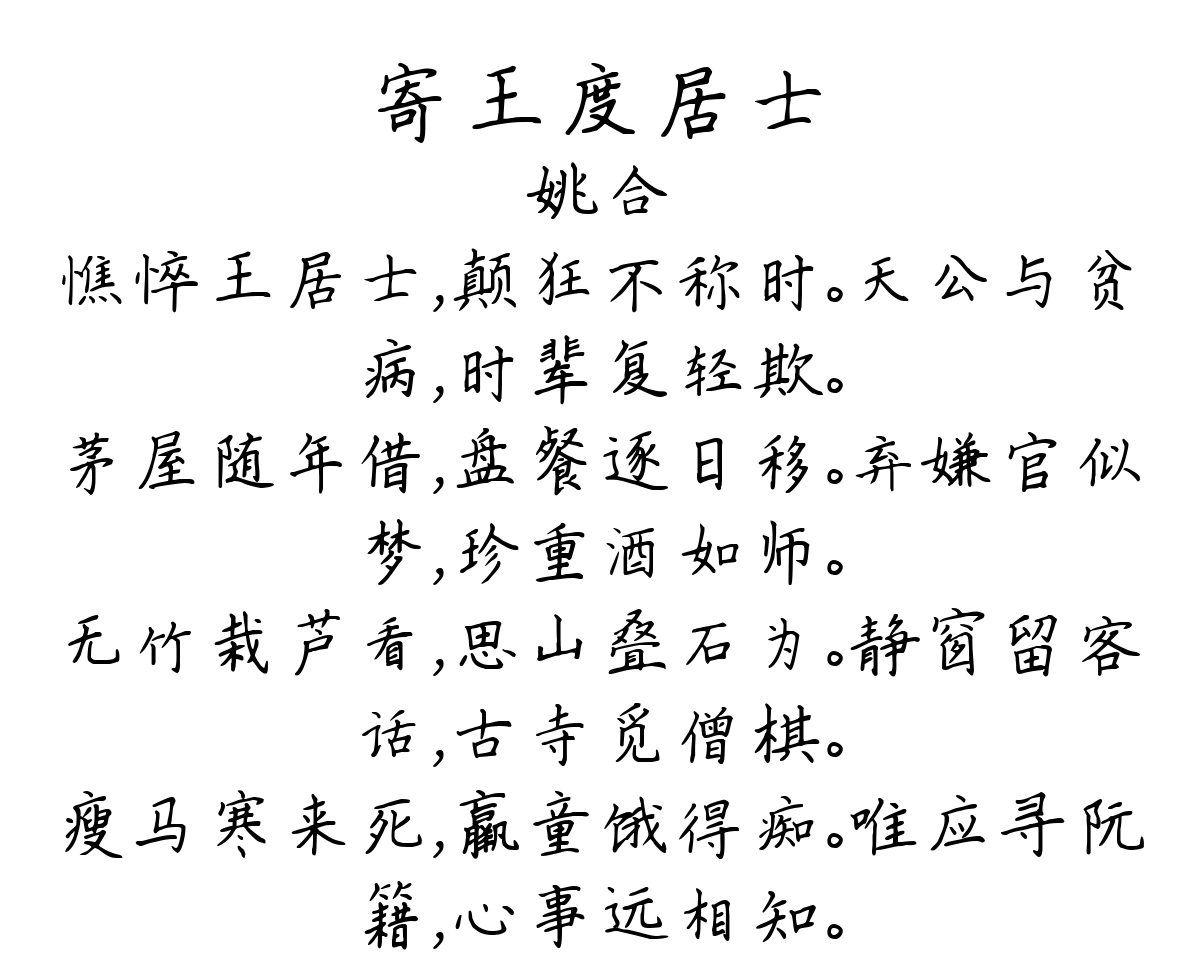 寄王度居士
姚合
憔悴王居士,颠狂不称时。天公与贫
病,时辈复轻欺。
茅屋随年借,盘餐逐日移。弃嫌官似
梦,珍重酒如师。
无竹栽芦看,思山叠石为。静窗留客
话,古寺觅僧棋。
瘦马寒来死,羸童饿得痴。唯应寻阮
籍,心事远相知。